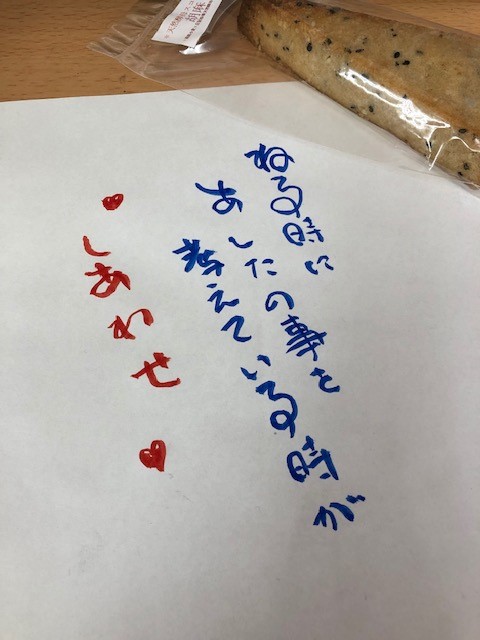 ねる時に
あしたの事を
考えている時が
♥しあわせ♥
胡麻